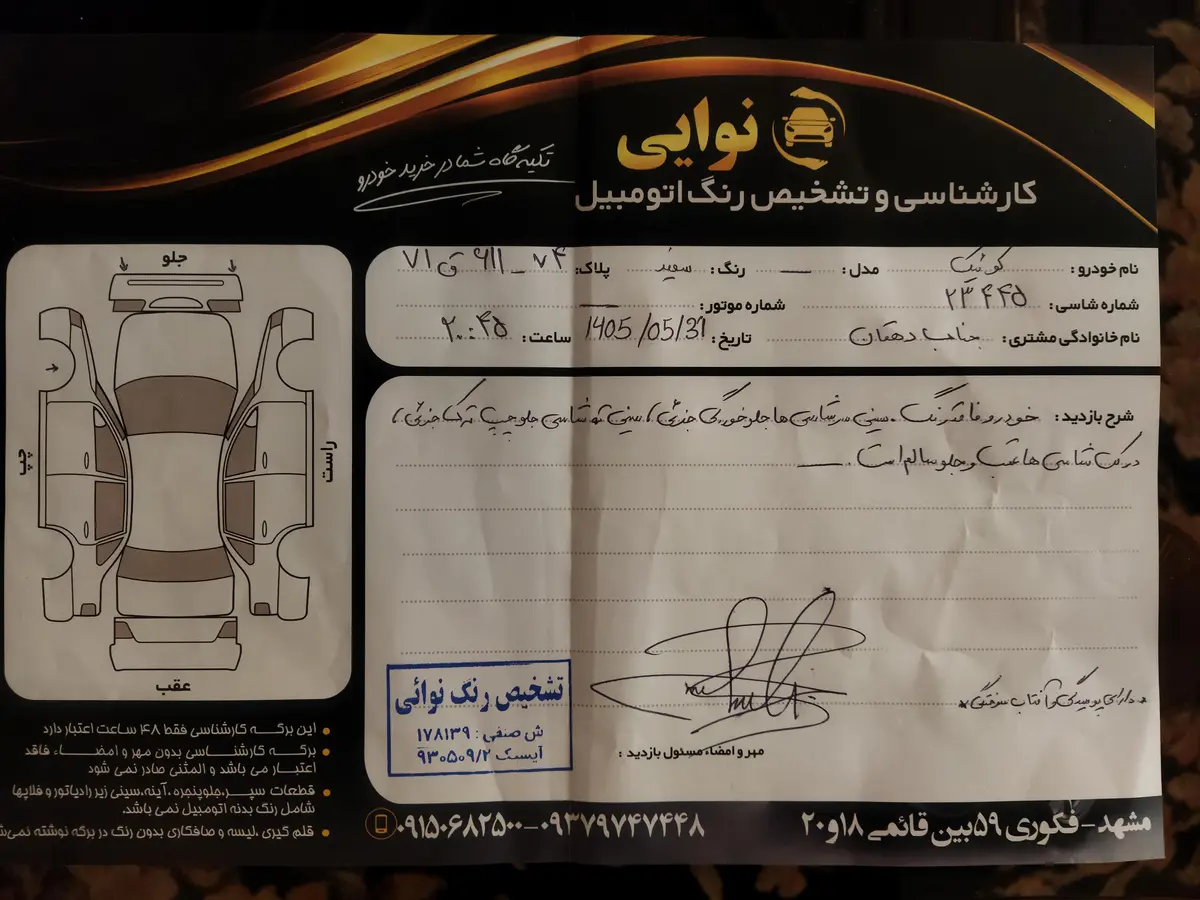 نوایی
کارشناسی و تشخیص رنگ اتومبیل
تکیه گاه شما در خرید خودرو
نام خودرو : کوئیک مدل : — رنگ : سفید پلاک : ۷۴ _ ۶۱۱ ق ۷۱
شماره شاسی : ۲۳۴۴۵ شماره موتور : —
نام خانوادگی مشتری : جناب دهقان تاریخ : 1405/05/31 ساعت : ۲۰:۴۵
شرح بازدید : خودرو فاقد رنگ . سینی سر شاسی ها جلو خوردگی جزئی ، سینی ته شاسی جلو چپ ترک جزئی ،
درک شاسی ها عقب و جلو سالم است . —
* دارای پوسیدگی و آفتاب سوختگی *
مهر و امضاء مسئول بازدید :
تشخیص رنگ نوائی
ش صنفی : ۱۷۸۱۳۹
آیسک ۹۳۰۵۰۹/۲
جلو
چپ
راست
عقب
این برگه کارشناسی فقط ۴۸ ساعت اعتبار دارد
برگه کارشناسی بدون مهر و امضاء فاقد
اعتبار می باشد و المثنی صادر نمی شود
قطعات سپر،جلوپنجره ،آینه،سینی زیر رادیاتور و فلاپها
شامل رنگ بدنه اتومبیل نمی باشد.
قلم گیری ،لیسه و صافکاری بدون رنگ در برگه نوشته
مشهد- فکوری ۵۹ بین قائمی ۱۸ و ۲۰
۰۹۱۵۰۶۸۲۵۰۰-۰۹۳۷۹۷۴۷۴۴۸